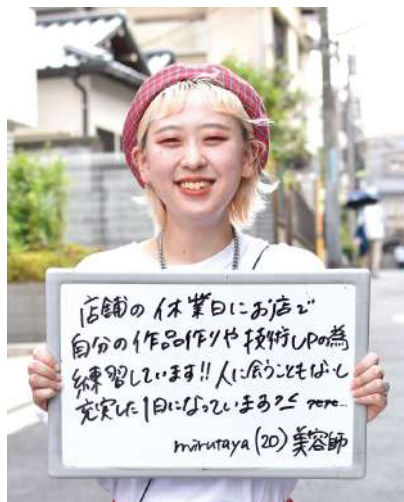 店舗の休業日にお店で
自分の作品作りや技術UPの為
練習しています!!人に会うこともないし
充実した1日になっています
mirutaya (20) 美容師